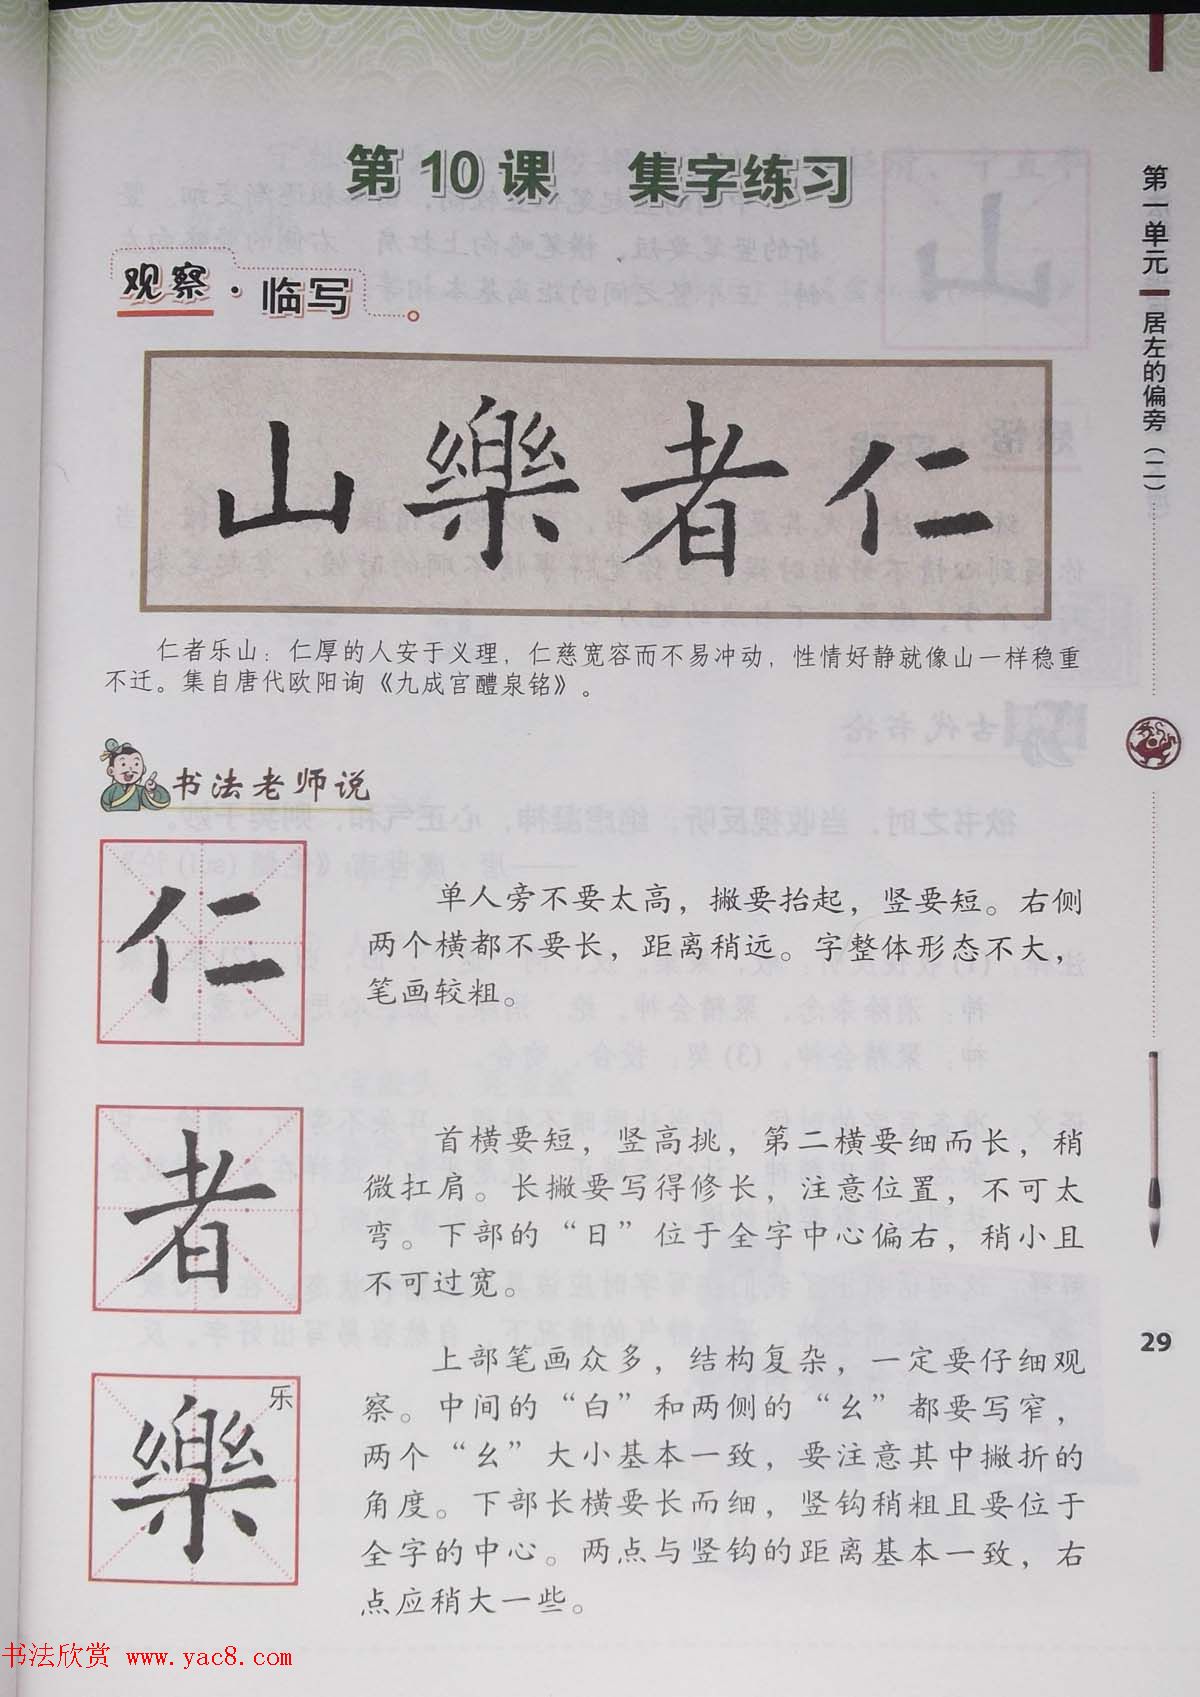 第10课 集字练习
观察·临写
山樂者仁
仁者乐山：仁厚的人安于义理，仁慈宽容而不易冲动，性情好静就像山一样稳重
不迁。集自唐代欧阳询《九成宫醴泉铭》。
书法老师说
仁
单人旁不要太高，撇要抬起，竖要短。右侧
两个横都不要长，距离稍远。字整体形态不大，
笔画较粗。
者
首横要短，竖高挑，第二横要细而长，稍
微扛肩。长撇要写得修长，注意位置，不可太
弯。下部的“日”位于全字中心偏右，稍小且
不可过宽。
樂
乐
上部笔画众多，结构复杂，一定要仔细观
察。中间的“白”和两侧的“幺”都要写窄，
两个“幺”大小基本一致，要注意其中撇折的
角度。下部长横要长而细，竖钩稍粗且要位于
全字的中心。两点与竖钩的距离基本一致，右
点应稍大一些。
第一单元 居左的偏旁（二）
29
书法欣赏 www.yac8.com